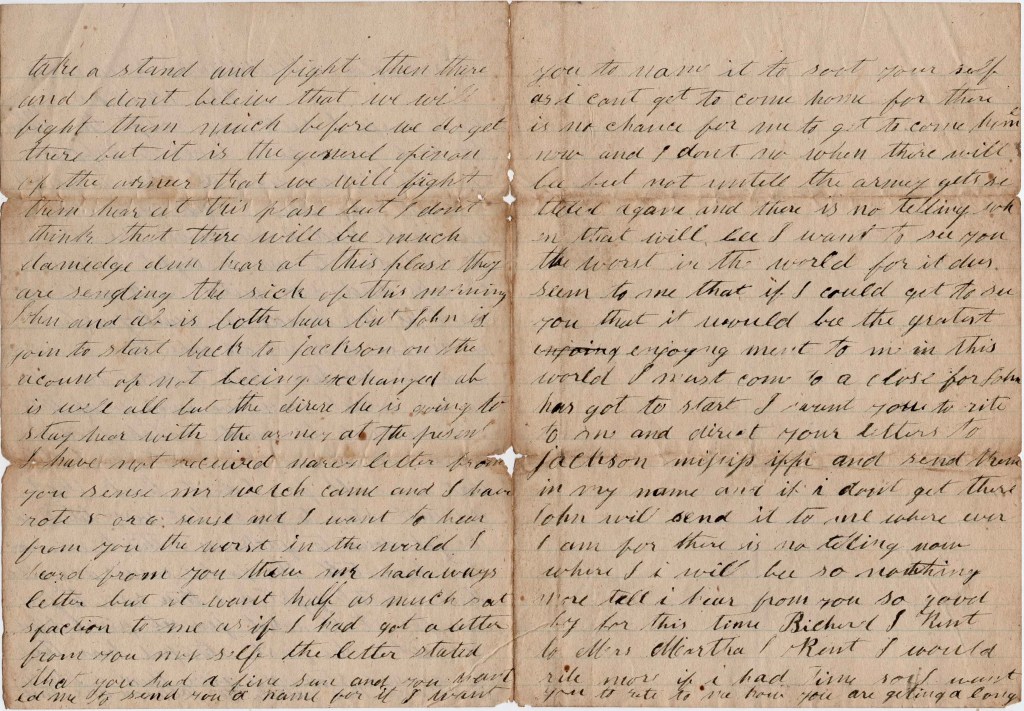 take a stand and fight then there
and I dont beleive that we will
fight them much before we do get
there but it is the general opinon
of the armer that we will fight
them hear at this plase but I dont
think that there will bee much
damedge dun hear at this plase they
are sending the sick of this morning
John and ab is both hear but John is
goin to start back to jackson on the
acount of not beeing exchanged ab
is well all but the direre he is going to
stay hear with the armey at the present
I have not received nare letter from
you sense mr welch came and I have
rote 5 or 6 sense and I want to hear
from you the worst in the world I
heard from you threw mr hadaways
letter but it want half as much sat
sfaction to me as if I had got a letter
from you my self the letter stated
that you had a fine sun and you want
ed me to send you a name for it I want
you to name it to soot your self
as i cant get to come home for there
is no chance for me to get to come home
now and I dont no when there will
bee but not untell the armey gets se
tteled agane and there is no telling wh
en that will bee I want to see you
the worst in the world for it dus
seem to me that if I could get to see
you that it would bee the gratest
enjoying ment to me in this
world I must come to a close for John
has got to start I want you to rite
to me and direct your letters to
jackson missip ippi and send them
in my name and if i dont get there
John will send it to me where ever
I am for there is no telling now
where I i will bee so nouthing
more tell i hear from you so good
by for this time Richerd J Kent
to Mrs Martha J Kent I would
rite more if i had time so i want
you to rite to me how you are geting along